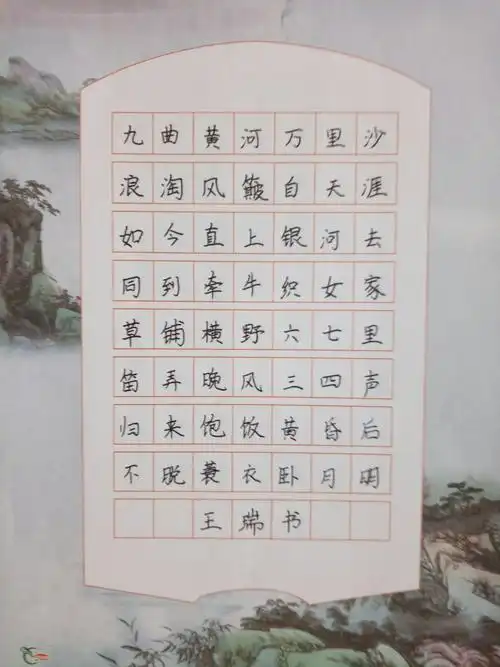 九曲黄河万里沙
浪淘风簸自天涯
如今直上银河去
同到牵牛织女家
草铺横野六七里
笛弄晚风三四声
归来饱饭黄昏后
不脱蓑衣卧月明
王瑞书